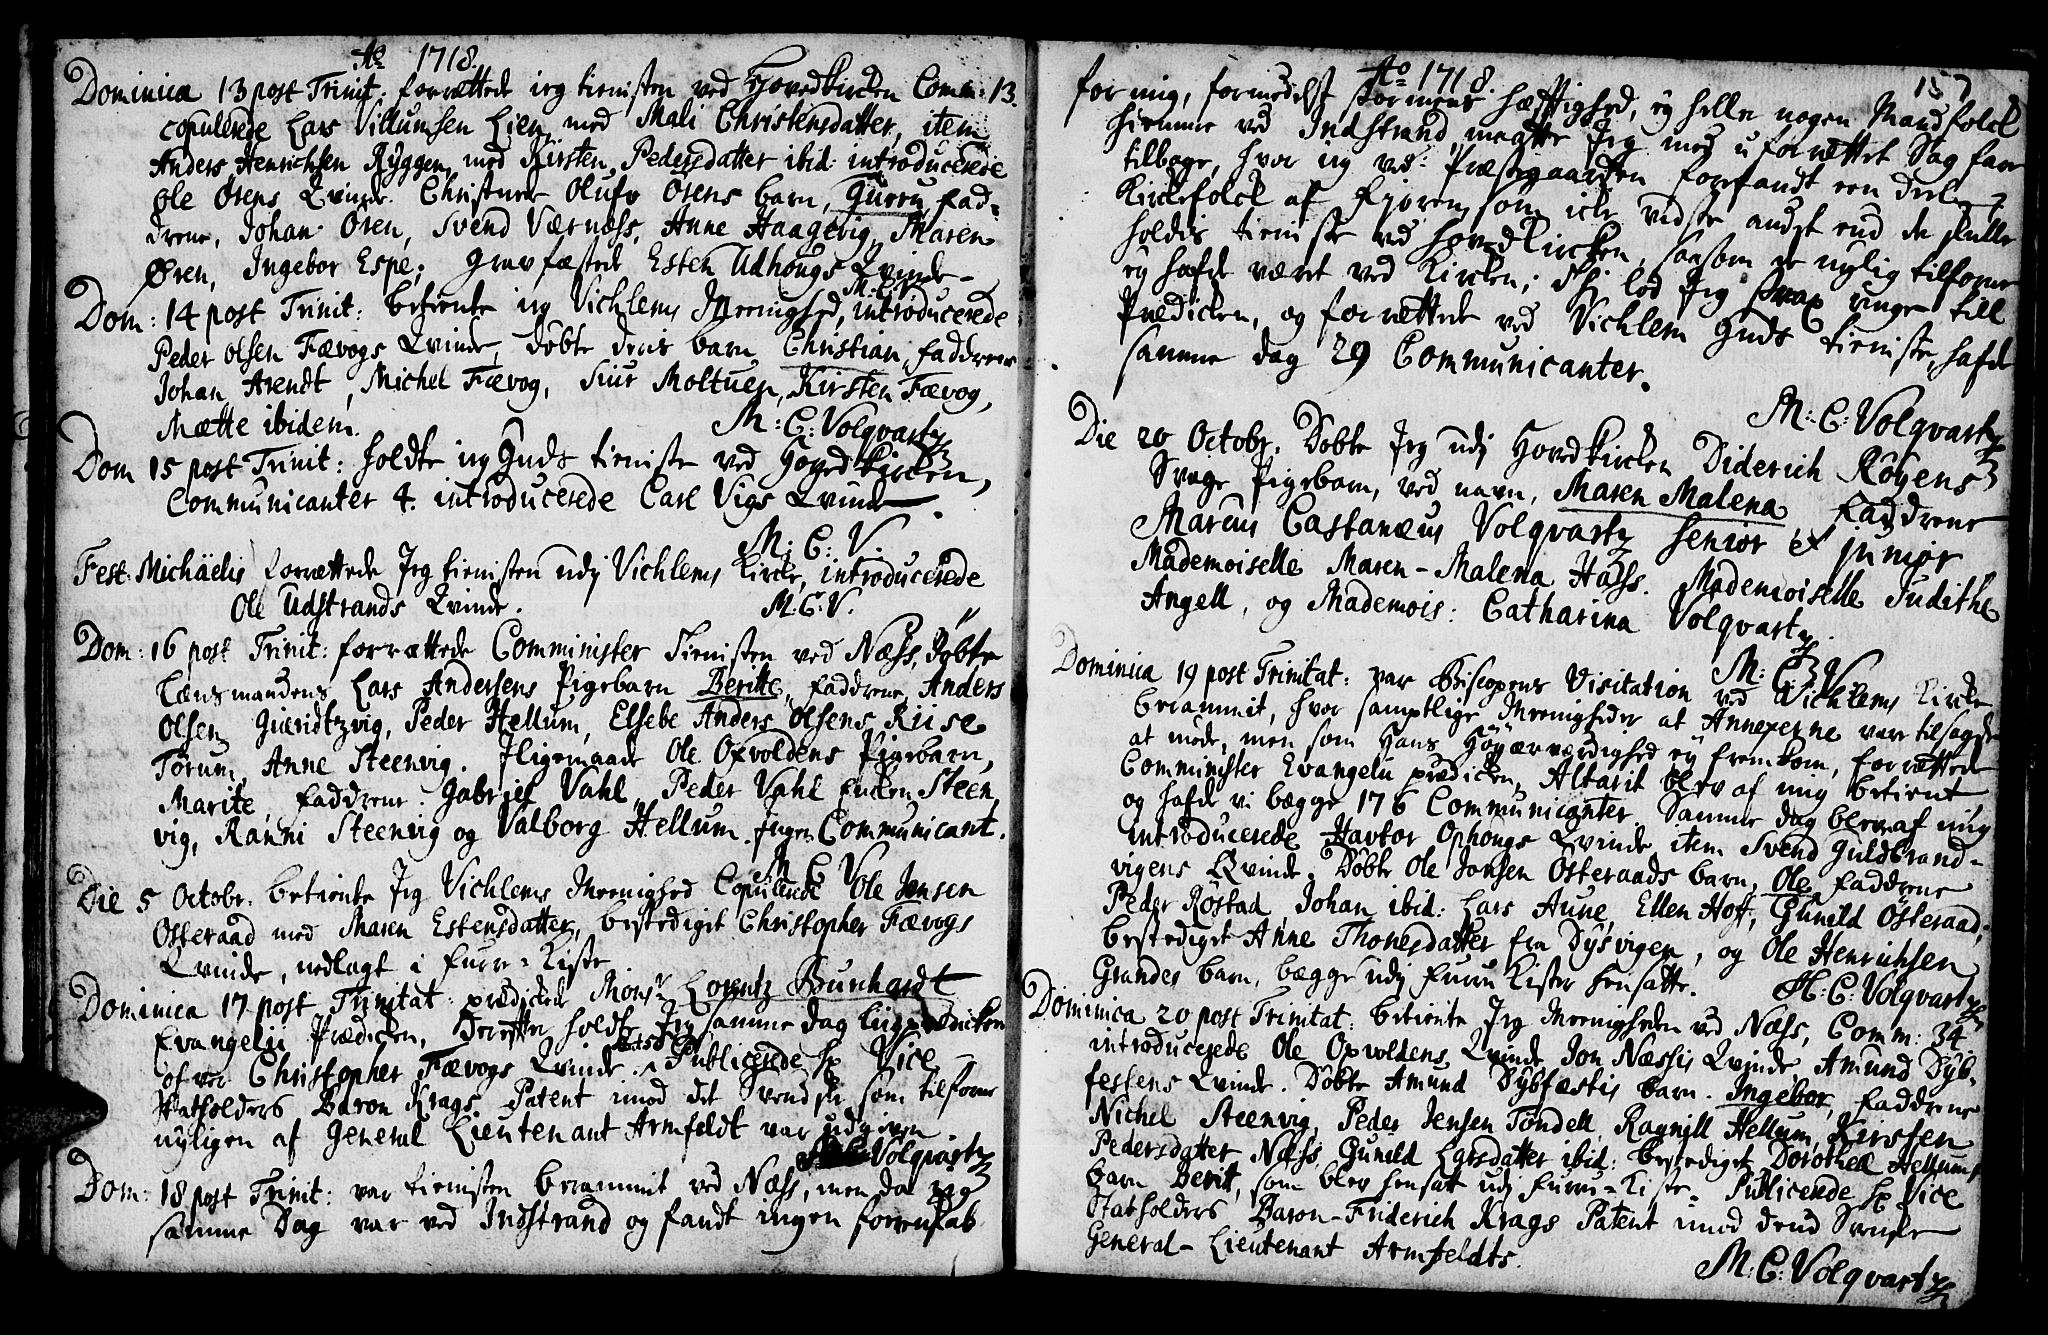 Ao 1718.
Dominica 13 post Trinit: forrættede ieg tienisten ved Hovedkircken Comm: 13.
copulerede Lars Villumsen Lien med Mali Christensdatter, item
Anders Henrichsen Ryggen med Kirsten Pedersdatter ibid: introducerede
Ole Ørens Qvinde. Christnede Olufv Ørens barn, Gurru, fad-
drene, Johan Ören, Svend Værness, Anne Haagevig, Maren
Øren, Ingebor Espe; Gravfæstede Esten Udhougs Qvinde
M: C: V:
Dom: 14 post Trinit: betiente ieg Vichlems Meenighed, introducerede
Peder Olsen Fævogs Qvinde, döbte deris barn Christian, faddrene
Johan Arendt, Michel Fævog, Siur Moltuen, Kirsten Fævog,
Mætte ibidem.
M: C: Volqvartz
Dom 15 post Trinit: holdte ieg Guds tieniste ved Hovedkircken,
Communicanter 4. introducerede Carl Vigs Qvinde.
M: C: V.
Fest: Michaëlis forrættede Jeg tienisten udj Vichlems Kircke, introducerede
Ole Udstrands Qvinde.
M: C: V.
Dom: 16 post Trinit: forrættede Comminister Tienisten ved Næss, Döbte
Lænsmandens Lars Andersens Pigebarn Beritte, faddrene, Anders
Olsen Gueridtzvig, Peder Hellum, Elsebe Anders Olsens Riise
Torum, Anne Steenvig. Iligemaade Ole Opvoldens Pigebarn,
Marite, faddrene. Gabriel Vahl, Peder Vahl Steen
vig, Ranni Steenvig og Valborg Hellum. Ingen Communicant.
M: C: V
Die 5 Octobr. betiente Jeg Vichlems Meenighed Copulerede Ole Jensen
Osteraad med Maren Estensdatter, bestediget Christopher Fævogs
Qvinde, nedlagt i furre-Kiste
Dominica 17 post Trinitat: prædickede Monsr Lorentz Burchardt
Evangelii Prædicken, Herefter holdte Jeg samme dag liigprædicken
ofver Christopher Fævogs Qvinde. Publicerede Hr Vice
Statholders Baron Krags Patent imod det Svendske som tilforne
nyligen af General Lieutenant Armfeldt var udgiven
M: C: Volqvartz
Dom: 18 post Trinit: var tienisten berammit ved Næss, men da jeg
samme Dag var ved Indstrand og fandt ingen forenskab
Ao 1718.
157
for mig, formedelst stormens hæftighed, ey heller nogen Mandfolck
hiemme ved Indstrand, maatte Jeg med uforrættet Sag fare
tilbage, hvor ieg ved Præstegaarden forefandt een deel
Kirckefolck af Fjoren, som icke vidste andet end de skulle
holdis tieniste ved Hovedkircken, saasom de nylig tilforne
ey hafde været ved Kircken; Thi lod Jeg strax ringe till
Prædicken, og forrættede ved Vichlem Guds tieniste, hafde
samme dag 29 Communicanter.
M: C: Volqvartz
Die 20 Octobr. Döbte Jeg udj Hovedkircken Diderich Röyens
Svage Pigebarn, ved navn, Maren Malena, faddrene
Marcus Castanæus Volqvartz Senior et junior
Mademoiselle Maren-Malena Hass. Mademoiselle Judithe
Angell, og Mademois: Catharina Volqvartz.
M: C: V
Dominica 19 post Trinitat: var Biscopens Visitation ved Vichlems Kircke
berammit, hvor samptlige Meenigheder at Annexerne vare tilsagde
at møde, men som Hans Höyærværdighed ey fremkom, forrættede
Comminister Evangelii prædicken, Altarit blev af mig betient
og hafde vi begge 176 Communicanter. Samme dag blev af mig
introducerede Havtor Ophougs Qvinde item Svend Guldbrand-
vigens Qvinde. Döbte Ole Jonsen Osteraads barn, Ole, faddrene
Peder Röstad, Johan ibid: Lars Aune, Ellen Hoff, Gunild Österaad,
bestediget Anne Thonesdatter fra Dysvigen, og Ole Henrichsen
Grandes barn, begge udj furru Kister hensatte.
M: C: Volqvartz
Dominica 20 post Trinitat: betiente Jeg Meenigheden ved Næss, Comm: 34
introducerede Ole Opvoldens Qvinde, Jon Næssis Qvinde, Amund Dyb-
festens Qvinde. Döbte Amund Dybfæstis barn. Ingebor, faddrene
Nichel Steenvig, Peder Jensen Töndell, Ragnill Hellum, Kirsten
Pedersdatter Næss Gunild Larsdatter ibid: bestediget Dorothea Hellums
barn Berit, som blev hensatt udj furru-Kiste. Publicerede Hr Vice
Statholders Baron-Friderich Krags Patent imod dend Svenske
General-Lieutenant Armfeldts.
M: C: Volqvartz